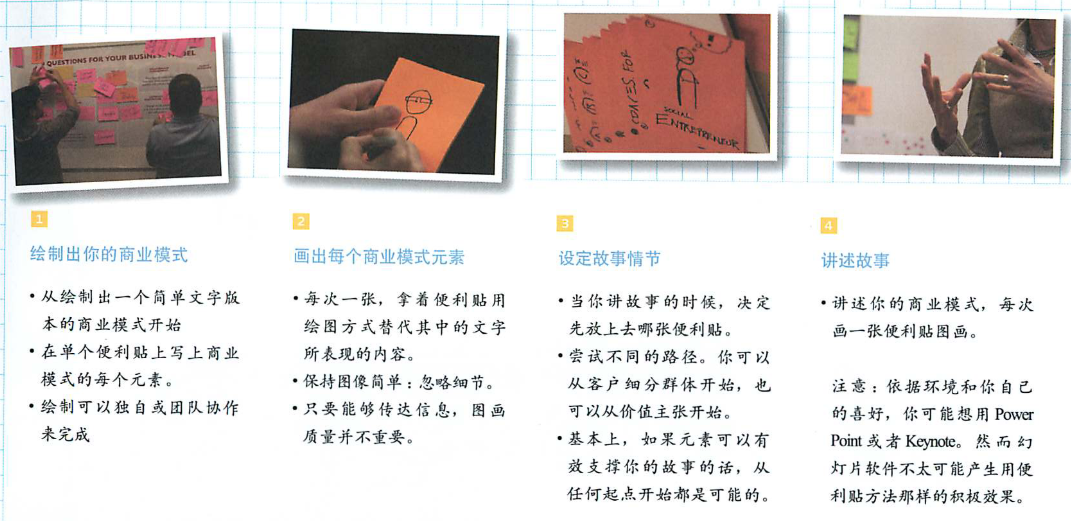 QUESTIONS FOR YOUR BUSINESS MODEL
SOCIAL
ENTREPRENEUR
1
绘制出你的商业模式
• 从绘制出一个简单文字版
本的商业模式开始
• 在单个便利贴上写上商业
模式的每个元素。
• 绘制可以独自或团队协作
来完成
2
画出每个商业模式元素
• 每次一张，拿着便利贴用
绘图方式替代其中的文字
所表现的内容。
• 保持图像简单：忽略细节。
• 只要能够传达信息，图画
质量并不重要。
3
设定故事情节
• 当你讲故事的时候，决定
先放上去哪张便利贴。
• 尝试不同的路径。你可以
从客户细分群体开始，也
可以从价值主张开始。
• 基本上，如果元素可以有
效支撑你的故事的话，从
任何起点开始都是可能的。
4
讲述故事
• 讲述你的商业模式，每次
画一张便利贴图画。
注意：依据环境和你自己
的喜好，你可能想用 Power
Point 或者 Keynote。然而幻
灯片软件不太可能产生用便
利贴方法那样的积极效果。